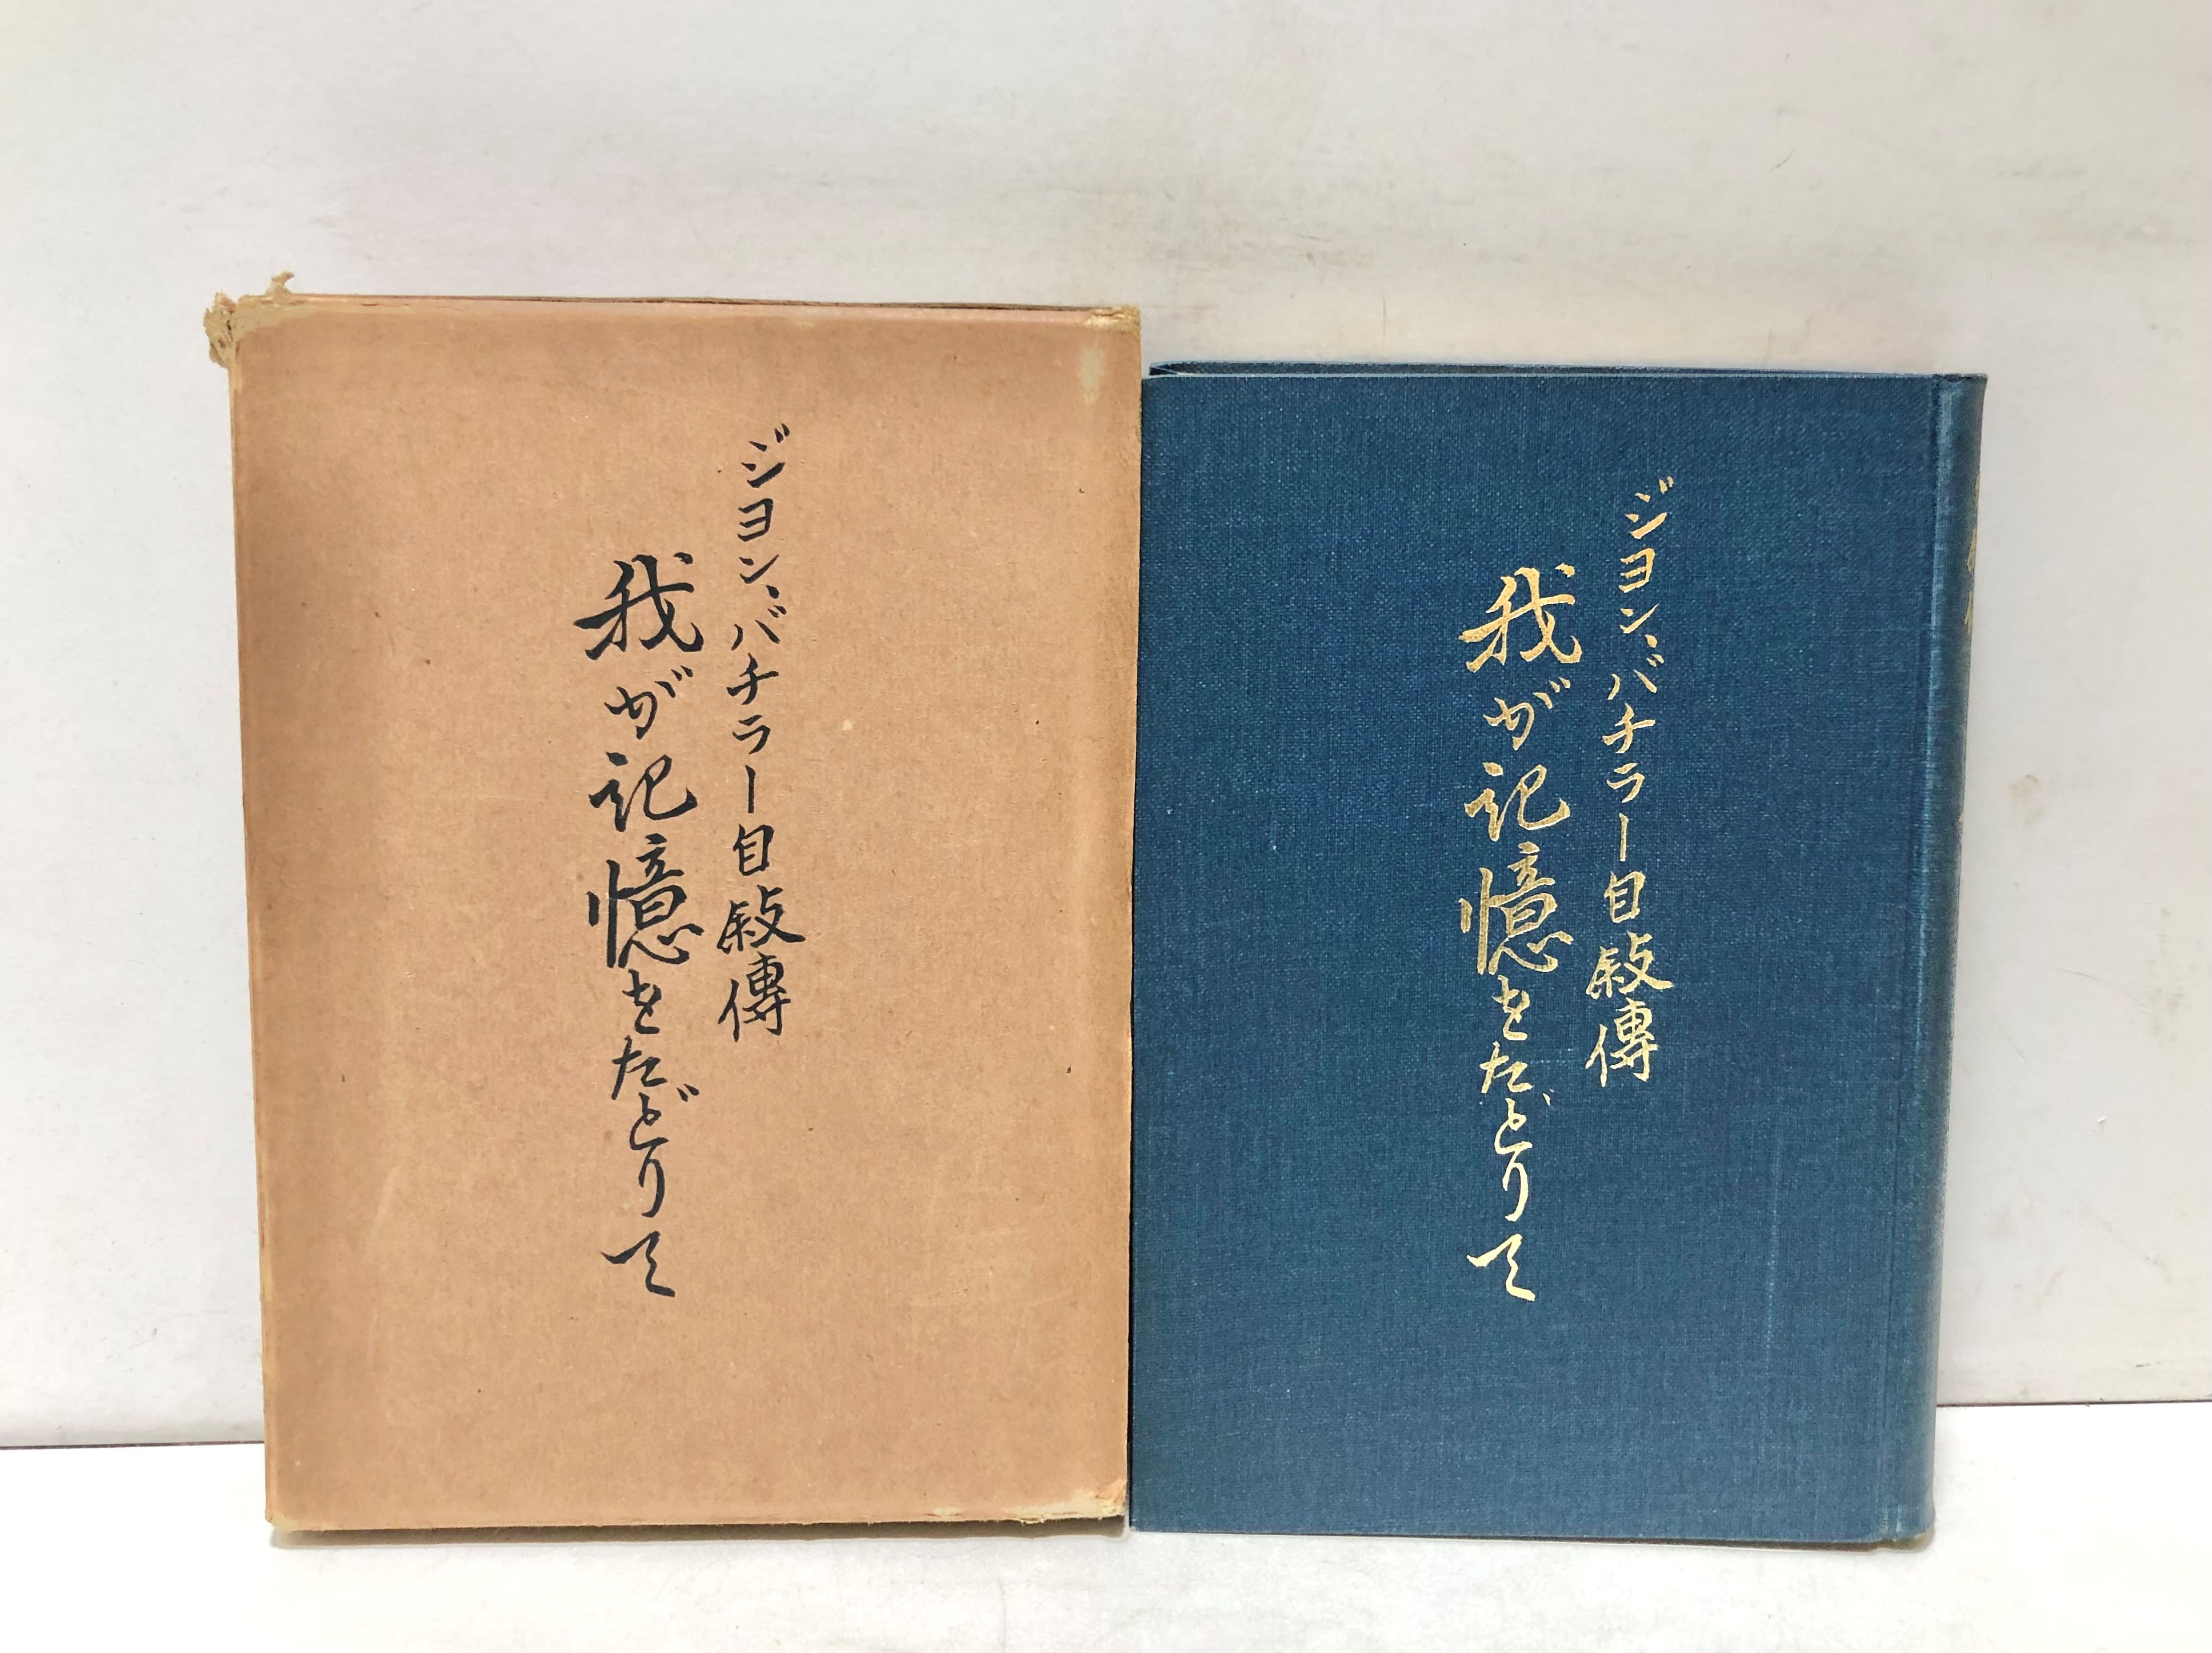 ジヨン、バチラー自敍傳
我が記憶をたどりて
ジヨン、バチラー自敍傳
我が記憶をたどりて